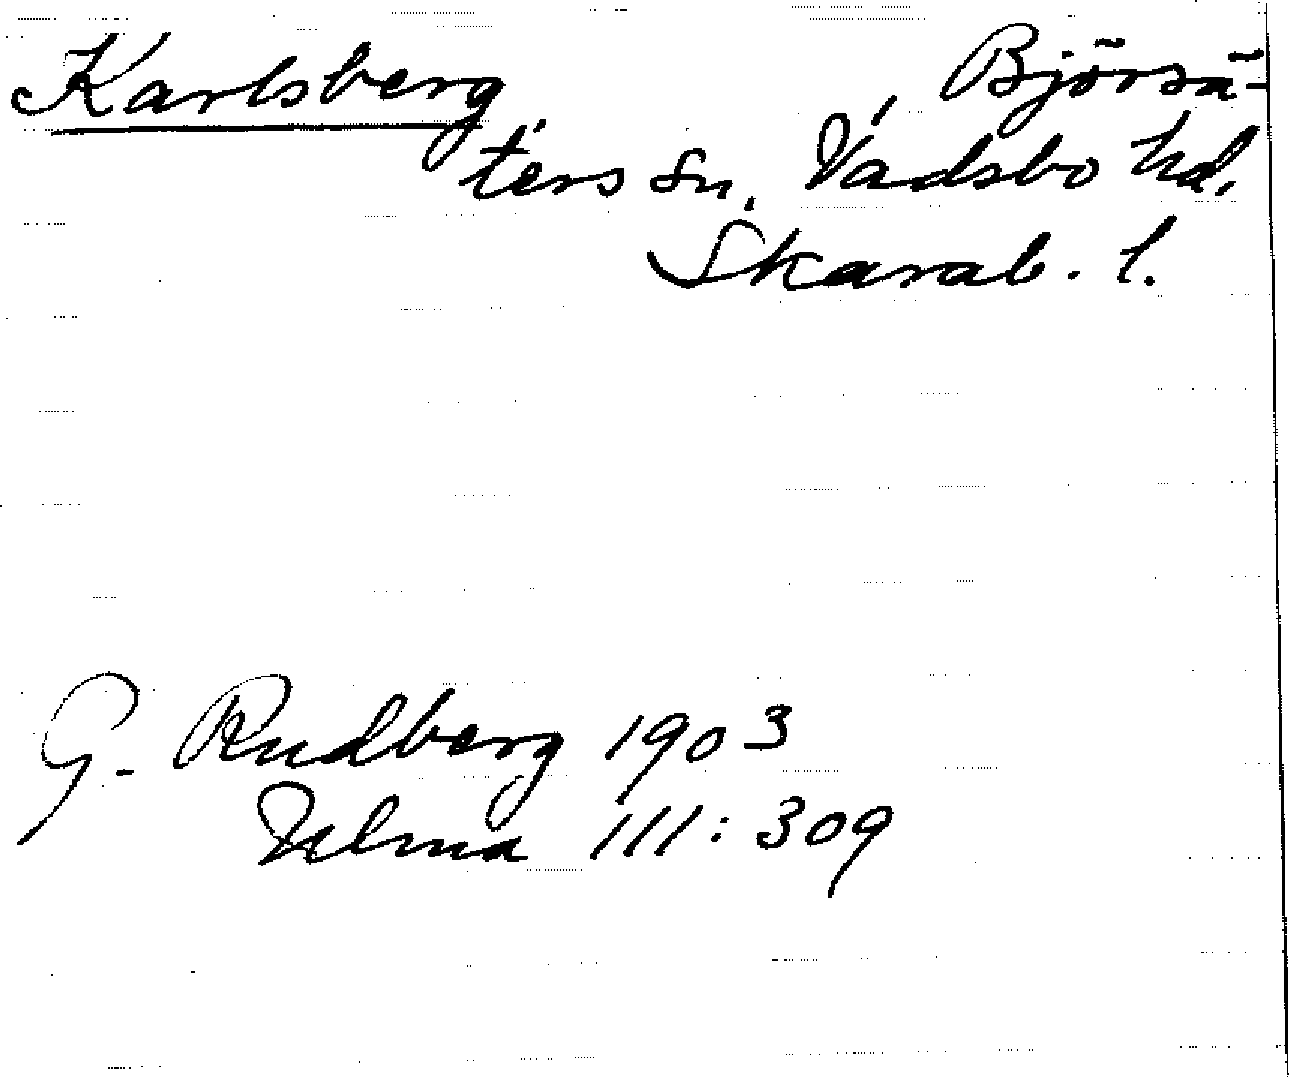 Karlsberg Björsä-
ters sn, Vadsbo hd,
Skarab. l.
G. Rudberg 1903
Ulma 111:309